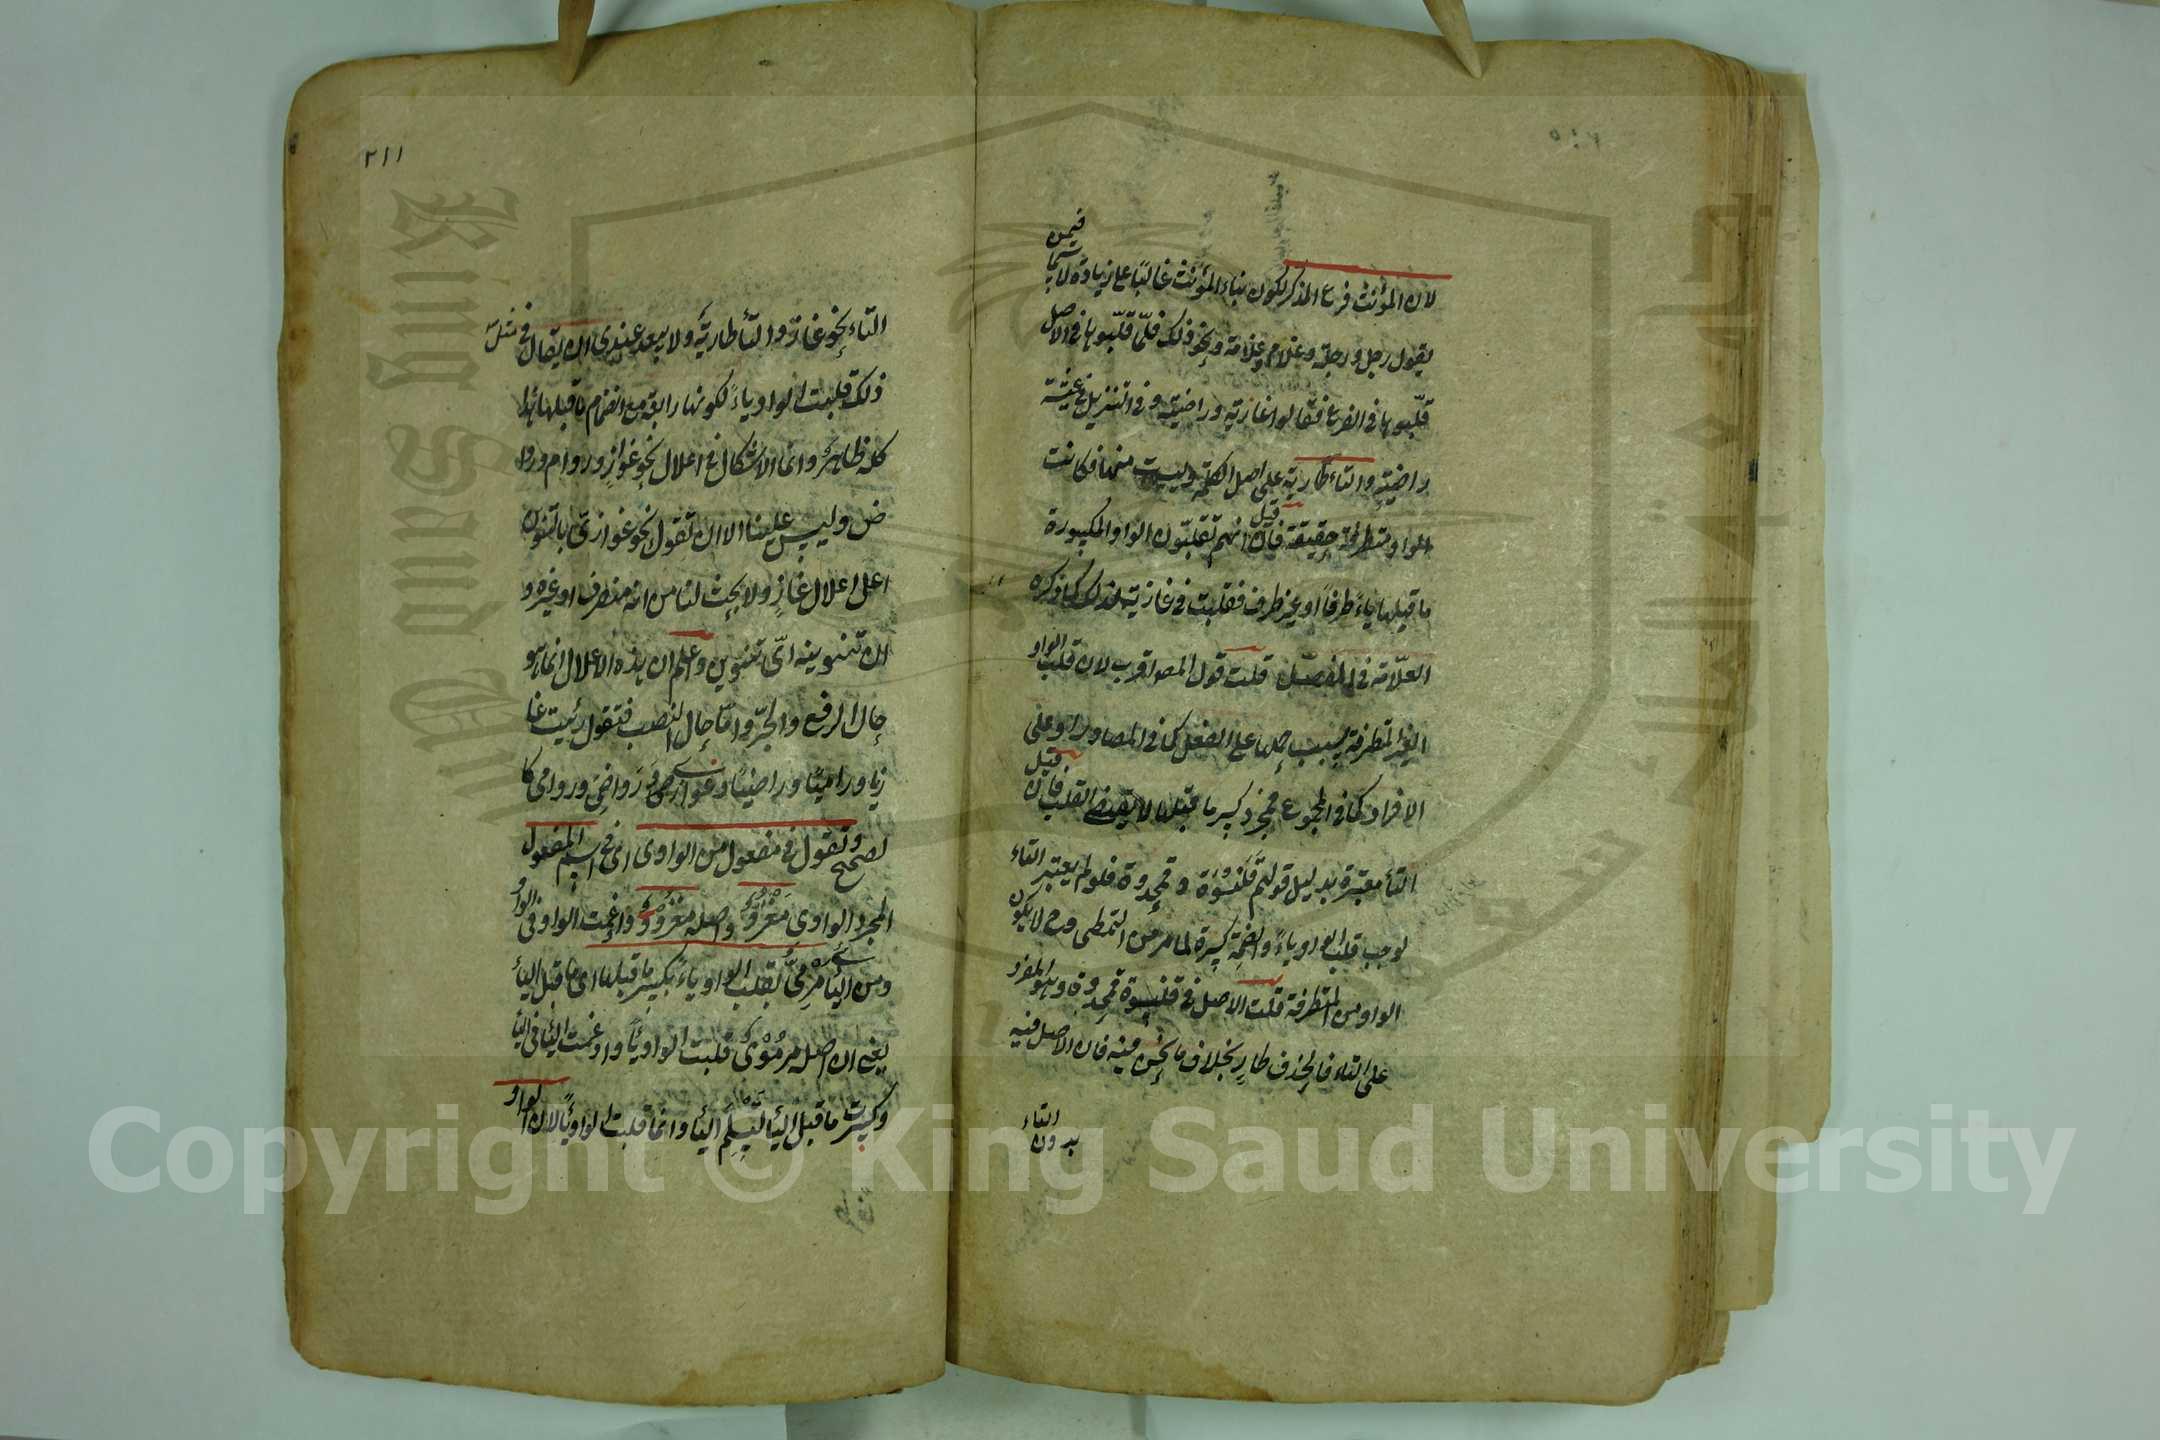 لان المؤنث فرع المذكر لكون بناء المؤنث غالبا على زيادة لا سيما فيمن
يقول رجل ورجلة وغلام وغلامة ونحو ذلك فلما قلبوها في الاصل
قلبوها في الفرع فقالوا غازية وراضية وفي التنزيل في عيشة
راضية والتاء طارية على اصل الكلمة وليست منها فكانت
الواو متطرفة حقيقة فان قيل انهم تقلبون الواو المكسورة
ما قبلها ياء طرفا او غير طرف فقلبت في غازية لذلك كما ذكره
العلامة في المفصل قلت قول المص اقرب لان قلب الواو
الغير المتطرفة بسبب حملها على الفعل كما في المصادر او على
الافراد كما في الجموع فمجرد كسر ما قبلها لا يقتضي القلب فان قيل
التاء معتبرة بدليل قولهم قلنسوة وقمحدوة فلو لم يعتبر التاء
لوجب قلب الواو ياء والضمة كسرة لما مر من التمطي وح لا يكون
الواو من المتطرفة قلت الاصل في قلنسوة قمحدوة وهو المفرد
على التاء فالحذف طار بخلاف ما نحن فيه فان الاصل فيه
بدون التاء
٢١١
التاء نحو غاز والتاء طارية ولا يبعد عندي ان يقال في مثل
ذلك قلبت الواو ياء لكونها رابعة مع انضمام ما قبلها هذا
كله ظاهر وانما الاشكال في اعلال نحو غواز وروام وروا
ض وليس علينا الا ان تقول نحو غوازي بالتنوين
اعل اعلال غاز ولا بحث لنا من انه منصرف او غيره و
ان تنوينه اي تنوين واعلم ان هذه الاعلال انما هو
حال الرفع والجر واما حال النصب فتقول رئيت غا
زيا وراميا وراضيا وغوازي ورواضي وروامي كا
لصحيح وتقول في مفعول من الواوي اي في اسم المفعول
المجرد الواوي مغزو واصله مغزوو وادغمت الواو في الواو
ومن اليائي مرمي بقلب الواو ياء بكسر ما قبلها اي ما قبل الياء
يعني ان اصله مرموي قلبت الواو ياء وادغمت الياء في الياء
وكسرت ما قبل الياء لتسلم الياء وانما قلبت الواو ياء لان الواو
Copyright © King Saud University
King Saud University